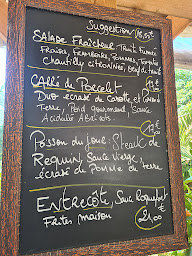 Suggestion 18,50€
SALADE FRAÎCHEUR Truite Fumée
Fraises, Framboises, Pommes, Tomates
chantilly citronnée,
CAPPÉ de Porcelet
Duo écrasé de Carotte et Pomme de
Terre, Pois gourmand, Sauce
Acidulée Abricots
Poisson du jour: Steack de
Requin, Sauce Vierge,
écrasé de Pomme de terre
ENTRECÔTE, Sauce Roquefort
Frites maison
21,00 €